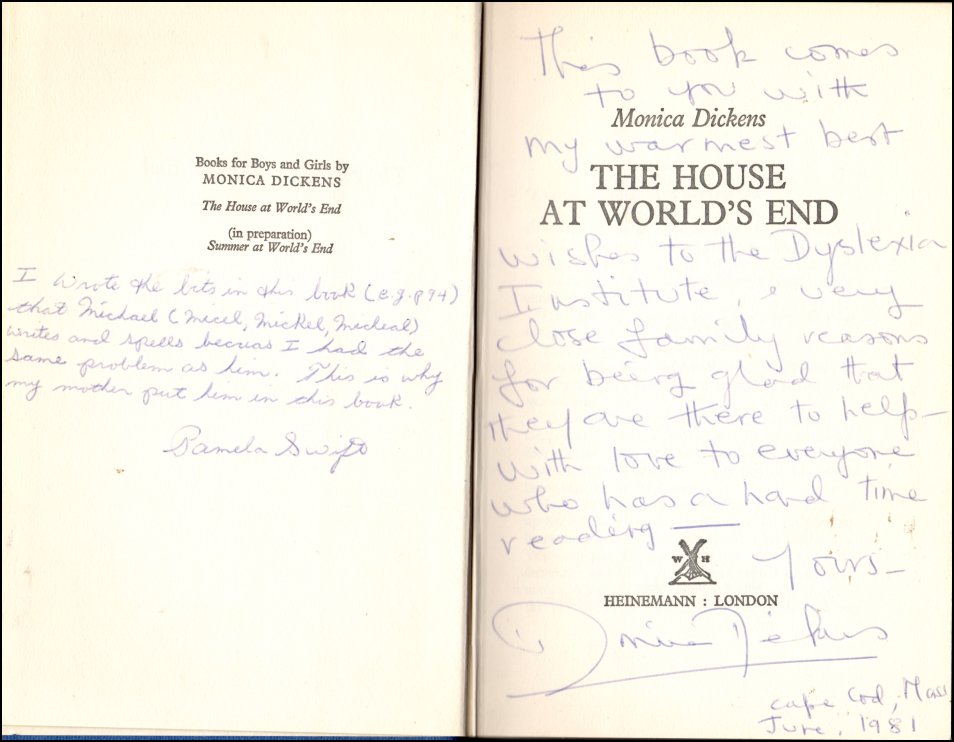 Books for Boys and Girls by
MONICA DICKENS
The House at World's End
(in preparation)
Summer at World's End
I wrote the bits in this book (e.g. p 94)
that Michael (Micel, Mickel, Micheal)
writes and spells becuas I had the
same problem as him. This is why
my mother put him in this book.
Pamela Swift
This book comes
to you with
Monica Dickens
my warmest best
THE HOUSE
AT WORLD'S END
wishes to the Dyslexia
Institute & very
close family reasons
for being glad that
they are there to help—
with love to everyone
who has a hard time
reading —
W H
Yours—
HEINEMANN : LONDON
Monica Dickens
Cape Cod, Mass
June, 1981